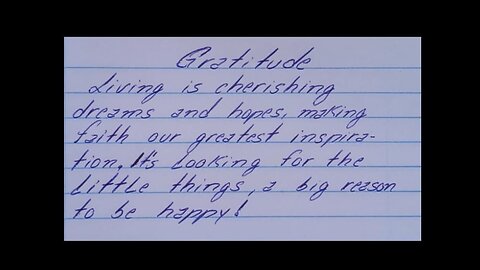 Gratitude
Living is cherishing
dreams and hopes, making
faith our greatest inspira-
tion. It's Looking for the
Little things, a big reason
to be happy!